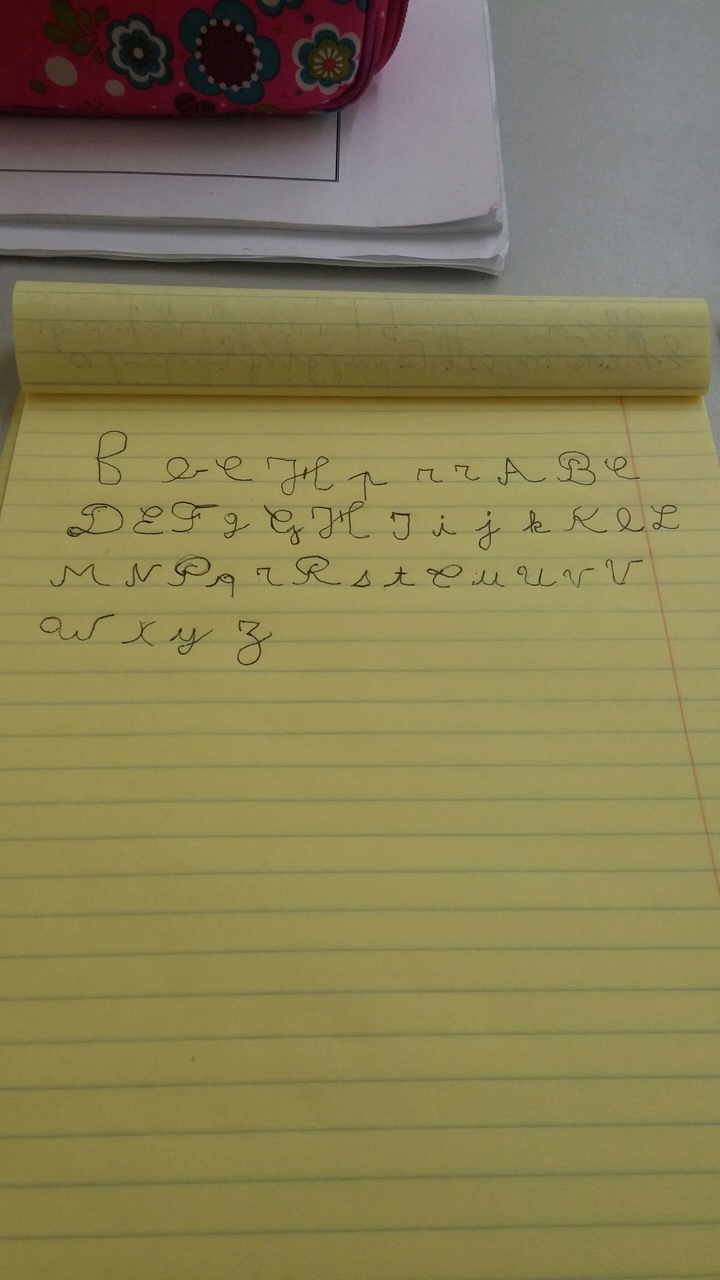 B b C H p r r A B C
D E F g G H J i j k K l L
M N P q r R s t C u U v V
W x y z